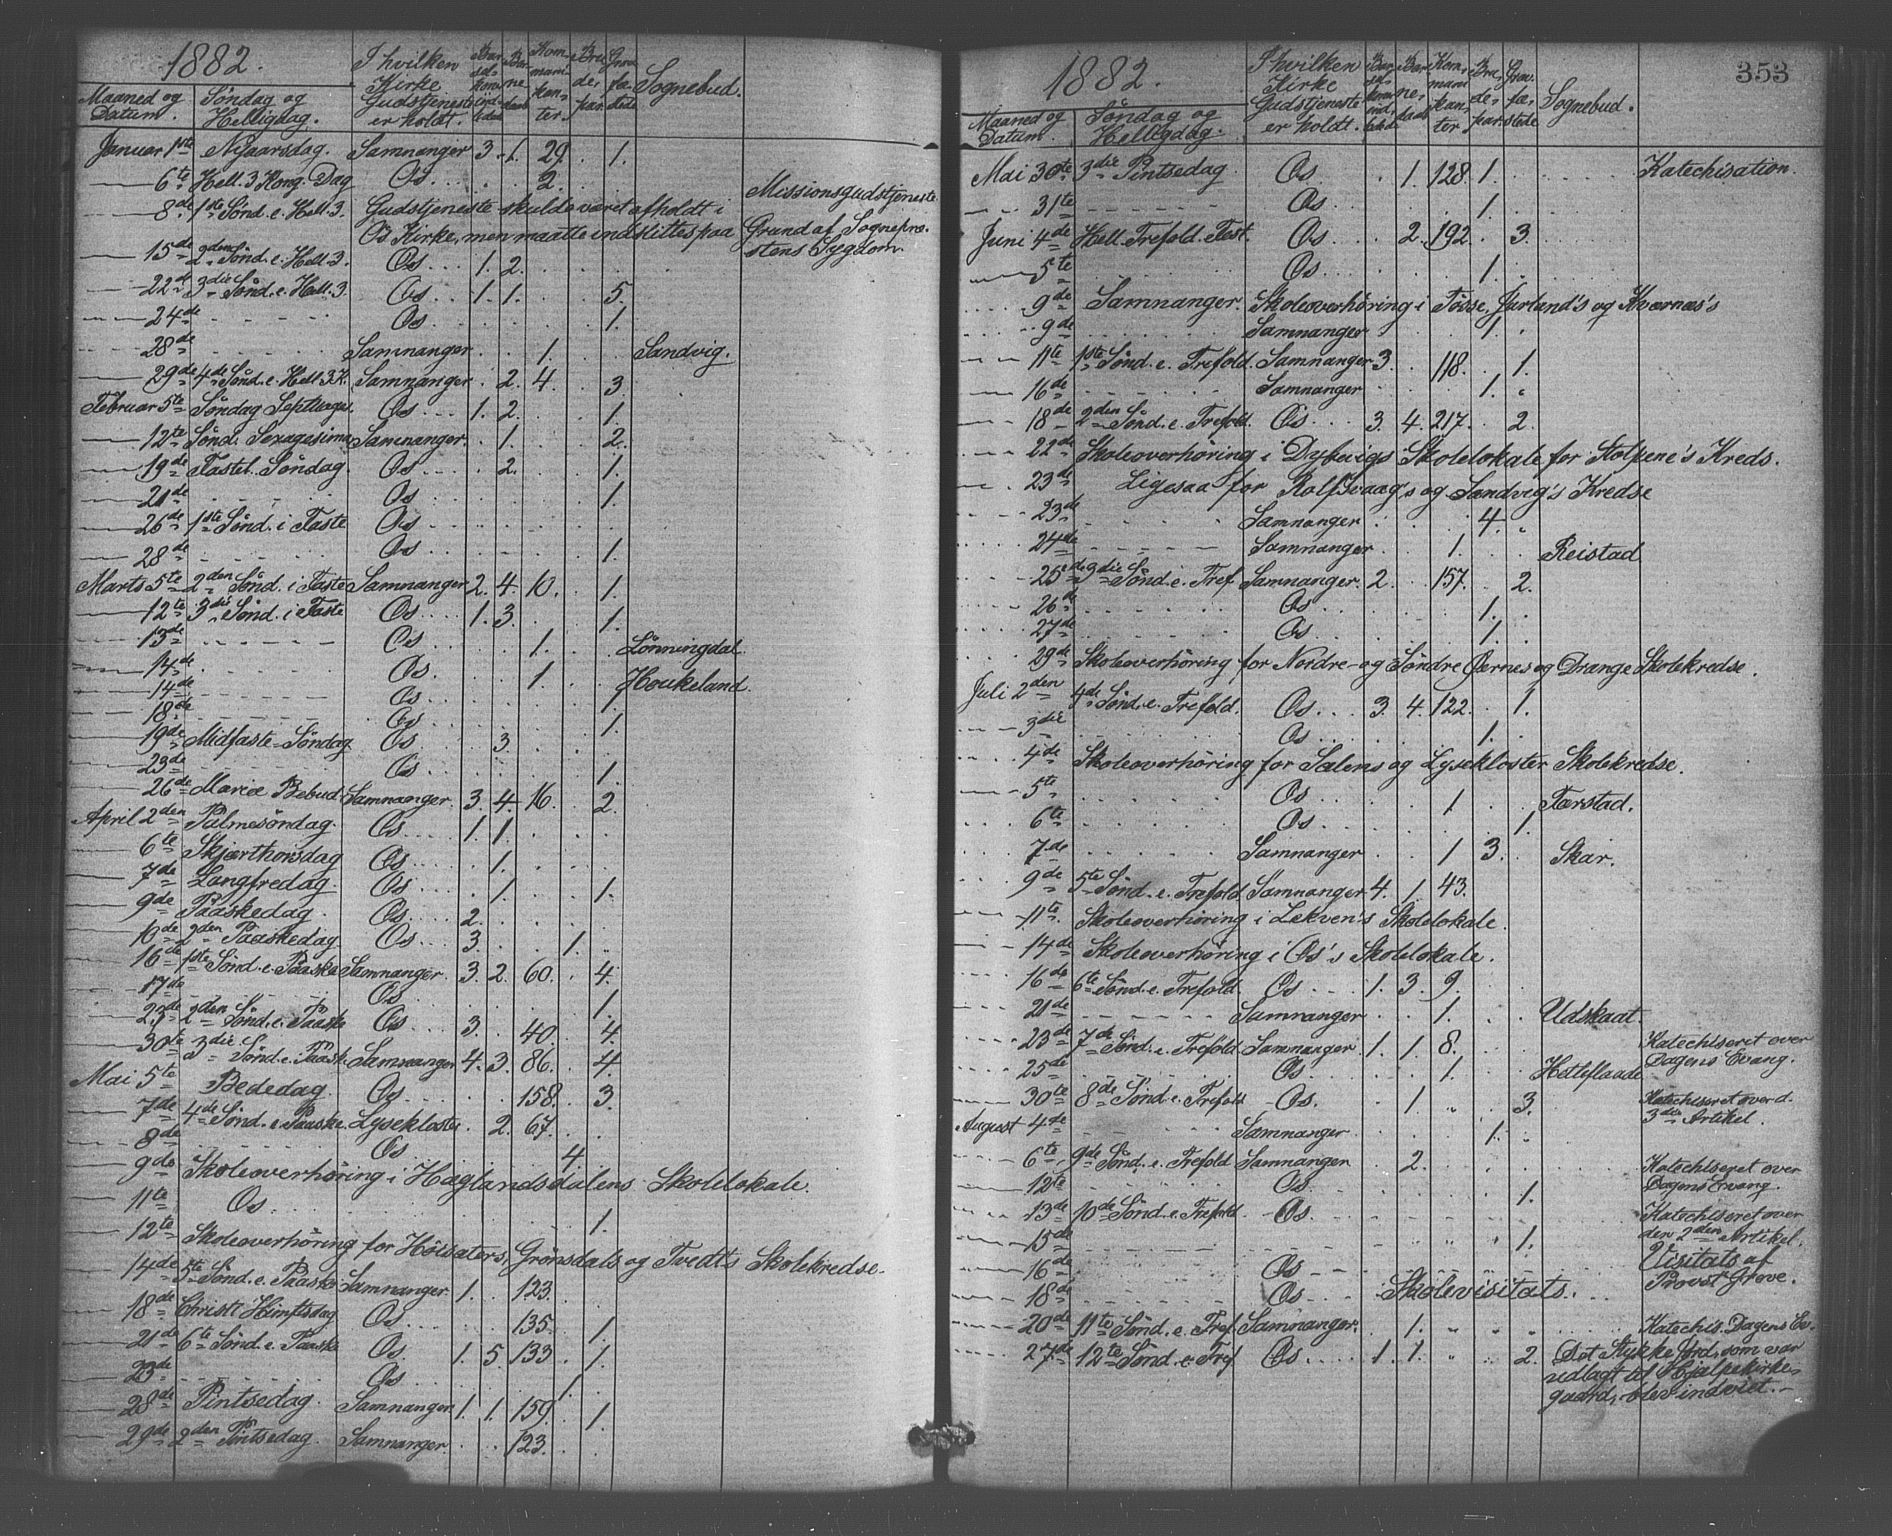 1882.
Maaned og Datum.
Søndag og Helligdag.
I hvilken Kirke Gudstjeneste er holdt.
Barselkoner indledede
Barnedaab
Kommunikanter.
Brudepar.
Gravfæstede
Sognebud.
Januar 1ste Nyaarsdag. Samnanger 3. 1. 29. 1.
6te Hell. 3 Kong. Dag Os 2.
8de 1ste Sønd. e. Hell. 3. Gudstjeneste skulde været afholdt i Missionsgudstjeneste
Os Kirke, men maatte indstilles paa Grund af Sognepræ-
15de 2den Sønd. e. Hell. 3. Os 1. 2. stens Sygdom.
22de 3die Sønd. e. Hell. 3. Os 1. 1. 5.
24de Os 1.
28de Samnanger 1. Sandvig.
29de 4de Sønd. e. Hell. 3 K. Samnanger 2. 4. 3.
Februar 5te Søndag Septuages. Os 1. 2. 1.
12te Sønd. Sexagesima Samnanger. 1. 2.
19de Fastel. Søndag. Os 2. 1.
21de Os 1.
26de 1ste Sønd. i Faste Os
28de Os 1.
Marts 5te 2den Sønd. i Faste Samnanger 2. 4. 10. 1.
12te 3die Sønd. i Faste Os 1. 3. 1.
13de Os 1. Lønningdal.
14de Os. 1. Houkeland.
14de Os 1.
18de Os 1.
19de Midfaste-Søndag Os 3.
23de Os 1.
26de Mariæ Bebud. Samnanger. 3. 4. 16. 2.
April 2den Palmesøndag. Os 1. 1.
6te Skjærthorsdag Os 1.
7de Langfredag. Os 1. 1.
9de Paaskedag. Os 2.
10de 2den Paaskedag Os 3. 1.
16de 1ste Sønd. e. Paaske Samnanger. 3. 2. 60. 4.
17de Os 1.
23de 2den Sønd. e. Paaske Os 3. 40. 4.
30te 3die Sønd. e. Paask. Samnanger 4. 3. 86. 4
Mai 5te Bededag. Os 158. 3.
7de 4de Sønd. e. Paaske. Lysekloster 2. 67.
8de Os 4.
9de Skoleoverhøring i Haglandsdalens Skolelokale.
11te Os. 1.
12te Skoleoverhøring for Hølsæters, Grønsdals og Tvedts Skolekredse.
14de 5te Sønd. e. Paaske Samnanger. 1. 123.
18de Christi Himftsdag Os 135. 1.
21de 6te Sønd. e. Paaske Os 1. 5. 133. 1.
23de Os 1.
28de Pintsedag. Samnanger. 1. 1. 159. 1.
29de 2den Pintsedag. Samnanger. 123.
353
1882.
Maaned og Datum.
Søndag og Helligdag.
I hvilken Kirke Gudstjeneste er holdt.
Barselkoner indledede
Barnedaab
Kommunikanter
Brudepar.
Gravfæstede
Sognebud.
Mai 30te 3die Pintsedag Os 1. 128. 1. Katechisation.
31te Os 1.
Juni 4de Hell. Trefold. Fest. Os 2. 192. 3.
5te Os 1.
9de Samnanger. Skoleoverhøring i Tøsse, Jarland's og Kværnæs's
9de Samnanger 1.
11te 1ste Sønd. e. Trefold. Samnanger 3. 118. 1.
16de Samnanger 1.
18de 2den Sønd. e. Trefold. Os 3. 4. 217. 2.
22de Skoleoverhøring i Dybvigs Skolelokale for Stolpene's Kreds.
23de Ligesaa for Rolfsvaag's og Sandvig's Kredse
23de Samnanger 4.
24de Samnanger 1. Reistad
25de 3die Sønd. e. Tref. Samnanger. 2. 157. 2.
26de Os 1.
27de Os 1.
29de Skoleoverhøring for Nordre- og Søndre Øernes og Drange Skolekredse.
Juli 2den 4de Sønd. e. Trefold. Os 3. 4. 122. 1.
3die Os 1.
4de Skoleoverhøring for Sælens og Lysekloster Skolekredse.
5te Os 1 Færstad.
6te Os 1.
7de Samnanger 1 3. Skar.
9de 5te Sønd. e. Trefold. Samnanger 4. 1. 43.
11te Skoleoverhøring i Lekven's Skolelokale.
14de Skoleoverhøring i Os's Skolelokale.
16de 6te Sønd. e. Trefold. Os 1. 3. 9.
21de Samnanger 1. Udskaat.
23de 7de Sønd. e. Trefold Samnanger. 1. 1. 8. Katechiseret over Dagens Evang.
25de Os 1. Hetleflaade
30te 8de Sønd. e. Trefold Os. 1. 3. Katechiseret over d. 3die Artikel.
August 4de Samnanger 1.
6te 9de Sønd. e. Trefold Samnanger 2. Katechiseret over
12te Os 1. Dagens Evang.
13de 10de Sønd. e. Trefold. Os. Katechiseret over
15de 1. den 2den Artikel.
16de Os Visitats af
18de Os Skolevisitats. Provst Grove.
20de 11te Sønd. e. Tref. Samnanger. 1. Katechis. Dagens Ev.
27de 12te Sønd. e. Tref Os 1. 1. 2. Det Stykke Jord, som var
udlagt til Hjælpekirke-
gaard, blev indviet.